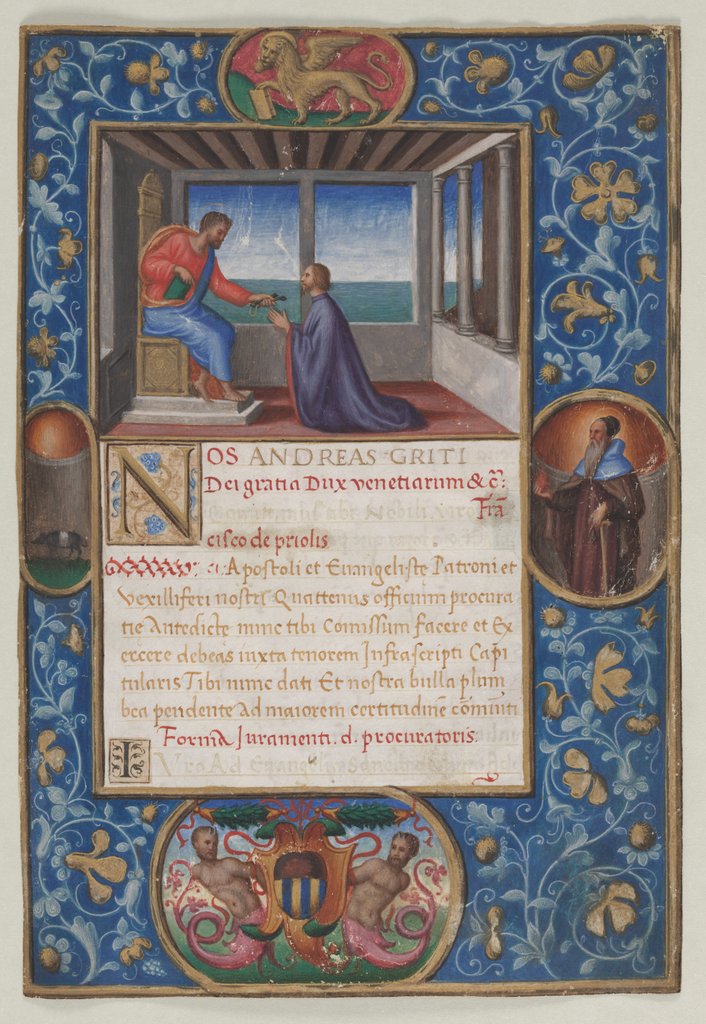 NOS ANDREAS GRITI
Dei gratia Dux venetiarum & c̃:
Frã
cisco de priolis
Apostoli et Euangelistę Patroni et
vexilliferi nostri Quattenus officium procura
tię Antedictę nunc tibi Comissum facere et Ex
ercere debeas iuxta tenorem Infrascripti Capi
tularis Tibi nunc dati Et nostra bulla plum
bea pendente ad maiorem certitudinẽ cõmuniti
Forma Iuramenti. d. procuratoris.